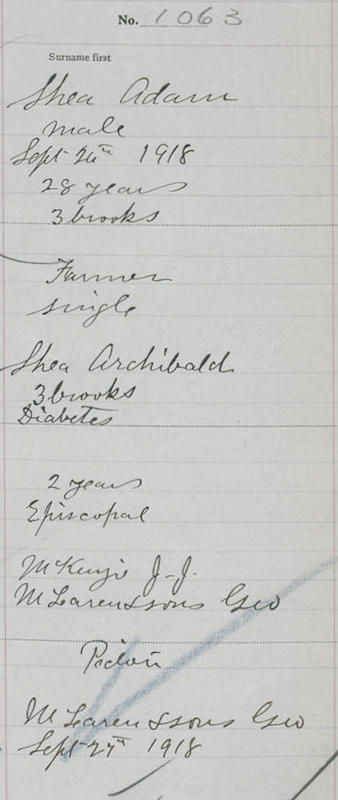 No. 1063
Surname first
Shea Adam
male
Sept 26th 1918
28 years
3 brooks
Farmer
single
Shea Archibald
3 brooks
Diabetes
2 years
Episcopal
McKenzie J-J.
McLaren & sons Geo
Pictou
McLaren & sons Geo
Sept 27th 1918